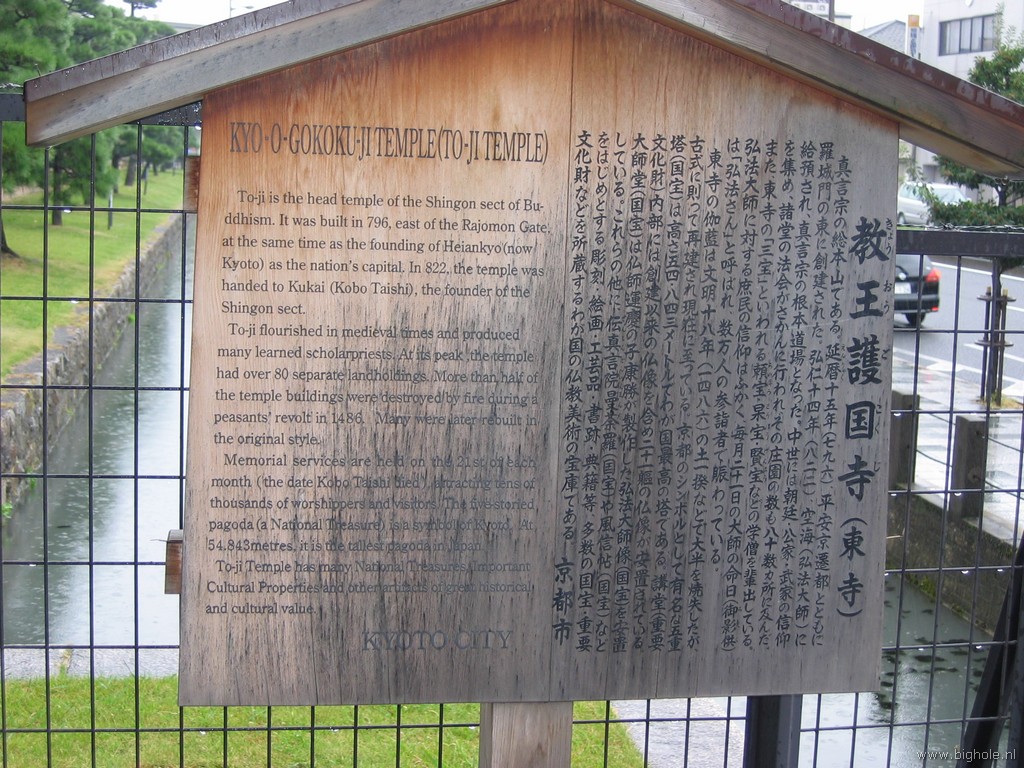 KYO-O-GOKOKU-JI TEMPLE(TO-JI TEMPLE)
To-ji is the head temple of the Shingon sect of Bu-
ddhism. It was built in 796, east of the Rajomon Gate,
at the same time as the founding of Heiankyo(now
Kyoto) as the nation's capital. In 822, the temple was
handed to Kukai (Kobo Taishi), the founder of the
Shingon sect.
To-ji flourished in medieval times and produced
many learned scholarpriests. At its peak, the temple
had over 80 separate landholdings. More than half of
the temple buildings were destroyed by fire during a
peasants' revolt in 1486. Many were later rebuilt in
the original style.
Memorial services are held on the 21st of each
month (the date Kobo Taishi died), attracting tens of
thousands of worshippers and visitors. The five-storied
pagoda (a National Treasure) is a symbol of Kyoto. At
54.843metres, it is the tallest pagoda in Japan.
To-ji Temple has many National Treasures, Important
Cultural Properties and other artifacts of great historical
and cultural value.
KYOTO CITY
教王護国寺(東寺)
きょうおうごこくじ
真言宗の総本山である。延暦十五年(七九六)平安京遷都とともに
羅城門の東に創建された。弘仁十四年(八二三)、空海(弘法大師)に
給預され、真言宗の根本道場となった。中世には朝廷・公家・武家の信仰
を集め、諸堂の法会がさかんに行われその庄園の数も八十数カ所に及んだ。
また「東寺の三宝」といわれる頼宝・杲宝・賢宝などの学僧を輩出している。
弘法大師に対する庶民の信仰はふかく、毎月二十一日の大師の命日(御影供)
は「弘法さん」と呼ばれ、数万人の参詣者で賑わっている。
東寺の伽藍は文明十八年(一四八六)の土一揆などで大半を焼失したが
古式に則って再建され現在に至っている。京都のシンボルとして有名な五重
塔(国宝)は高さ五四・八四三メートルでわが国最高の塔である。講堂(重要
文化財)内部には創建以来の仏像を含め二十一軀の仏像が安置されている。
大師堂(国宝)は仏師運慶の子康勝が製作した弘法大師像(国宝)を安置
している。これらの他に伝真言院曼荼羅(国宝)や風信帖(国宝)など
をはじめとする彫刻、絵画・工芸品・書跡・典籍等、多数の国宝・重要
文化財などを所蔵するわが国の仏教美術の宝庫である。
京都市
www.bighole.nl